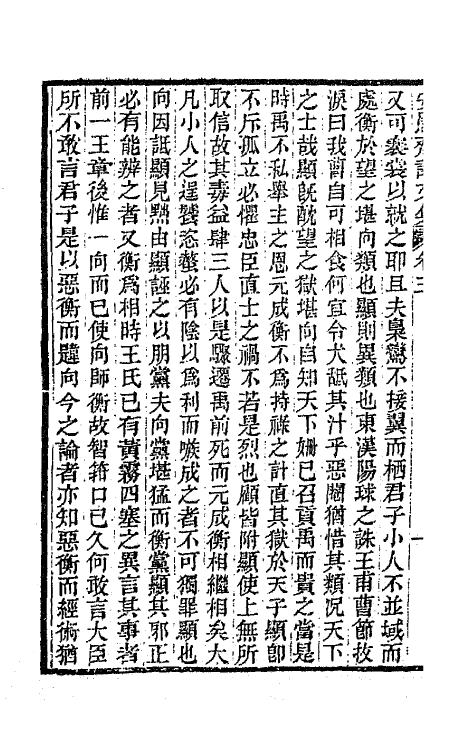 又可褰裳以就之耶且夫梟鸞不接翼而栖君子小人不並域而
處衡於望之堪向類也顯則異類也東漢陽球之誅王甫曹節抆
淚曰我曹自可相食何宜令犬舐其汁乎惡閹猶惜其類況天下
之士哉顯旣酖望之獄堪向自知天下姍已召貢禹而貴之當是
時禹不私舉主之恩元成衡不爲持祿之計直其獄於天子顯卽
不斥孤立必懼忠臣直士之禍不若是烈也顧皆附顯使上無所
取信故其毒益肆三人以是驟遷禹前死而元成衡相繼相矣大
凡小人之逞饕恣螫必有陰以爲利而嗾成之者不可獨罪顯也
向因詆顯見黜由顯誣之以朋黨夫向黨堪猛而衡黨顯其邪正
必有能辨之者又衡爲相時王氏已有黃霧四塞之異言其事者
前一王章後惟一向而已使向師衡故智籍口已久何敢言大臣
所不敢言君子是以惡衡而韙向今之論者亦知惡衡而經術猶